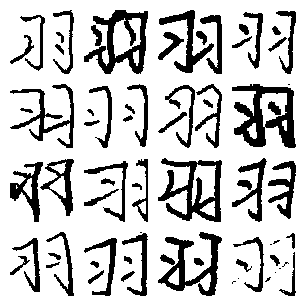 羽羽羽羽
羽羽羽羽
羽羽羽羽
羽羽羽羽